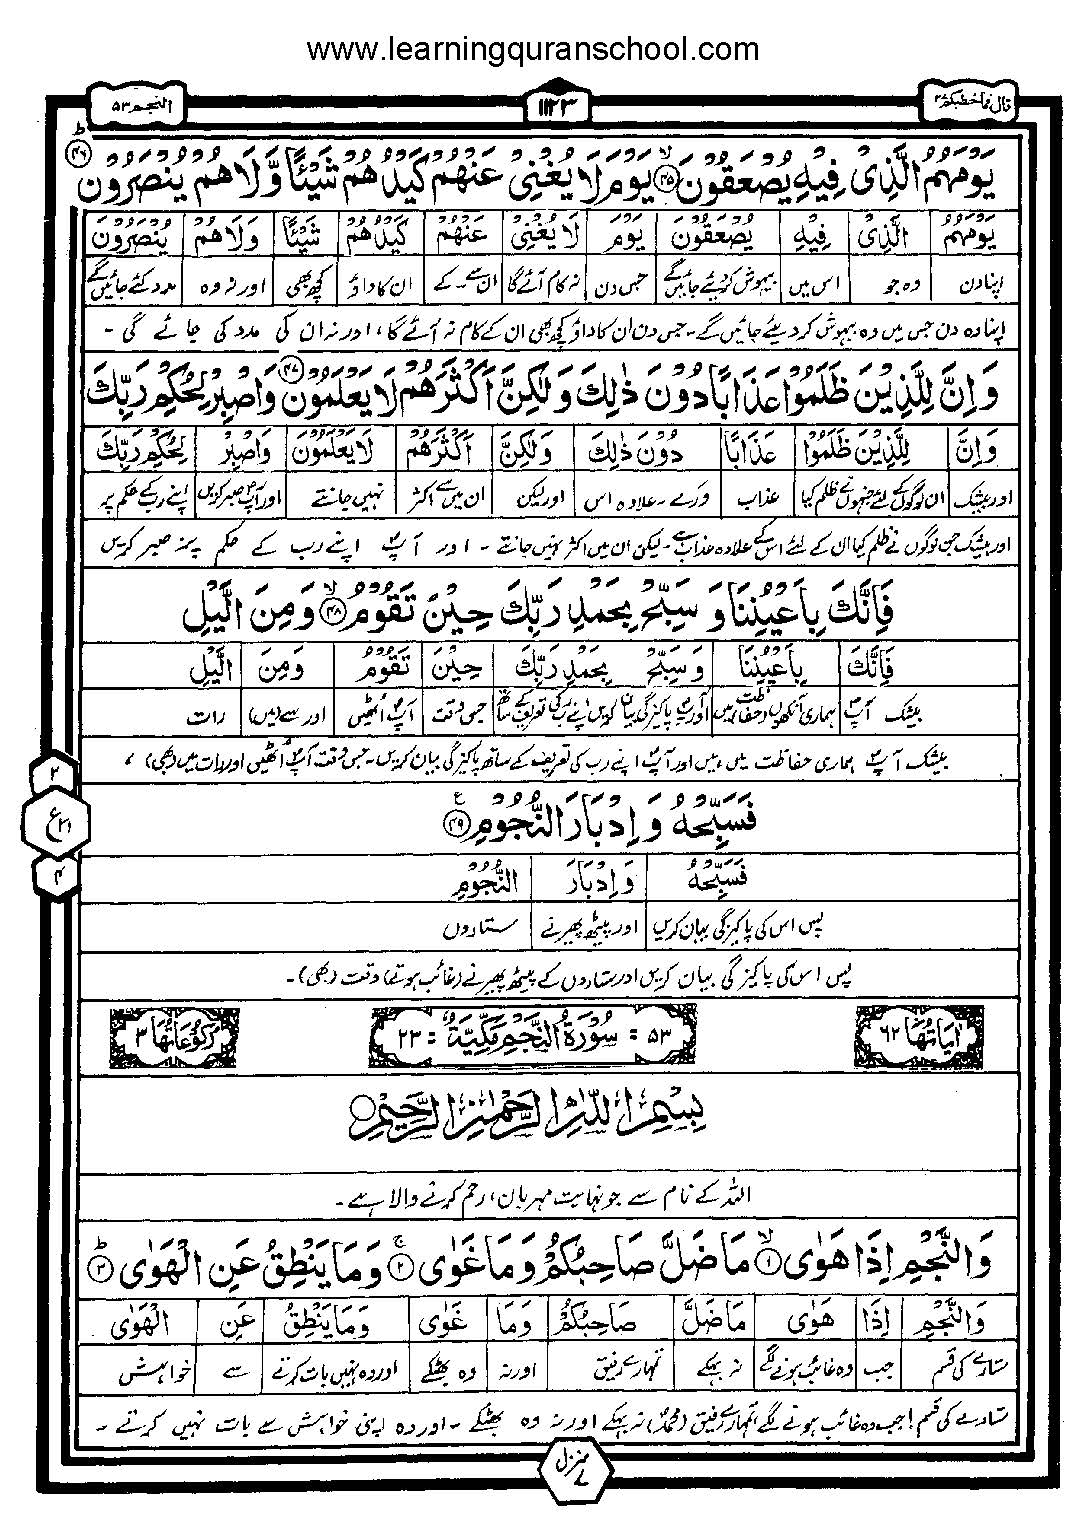 www.learningquranschool.com
قال فما خطبكم ۲۷
۱۱۲۳
النجم ۵۳
يَوْمَهُمُ الَّذِىْ فِيْهِ يُصْعَقُوْنَ ۙ‏﴿۴۵﴾ يَوْمَ لَا يُغْنِىْ عَنْهُمْ كَيْدُهُمْ شَيْـئًا وَّلَا هُمْ يُنْصَرُوْنَ ؕ‏﴿۴۶﴾
يَوْمَهُمُ الَّذِىْ فِيْهِ يُصْعَقُوْنَ يَوْمَ لَا يُغْنِىْ عَنْهُمْ كَيْدُهُمْ شَيْـئًا وَّلَا هُمْ يُنْصَرُوْنَ
اپنا دن وہ جو اس میں بیہوش کر دیئے جائیں گے جس دن نہ کام آئے گا ان سے ۔ کے ان کا داؤ کچھ بھی اور نہ وہ مدد کئے جائیں گے
اپنا وہ دن جس میں وہ بیہوش کر دیئے جائیں گے ۔ جس دن ان کا داؤ کچھ بھی ان کے کام نہ آئے گا، اور نہ ان کی مدد کی جائے گی ۔
وَاِنَّ لِلَّذِيْنَ ظَلَمُوْا عَذَابًا دُوْنَ ذٰلِكَ وَلٰكِنَّ اَكْثَرَهُمْ لَا يَعْلَمُوْنَ ‏﴿۴۷﴾ وَاصْبِرْ لِحُكْمِ رَبِّكَ
وَاِنَّ لِلَّذِيْنَ ظَلَمُوْا عَذَابًا دُوْنَ ذٰلِكَ وَلٰكِنَّ اَكْثَرَهُمْ لَا يَعْلَمُوْنَ وَاصْبِرْ لِحُكْمِ رَبِّكَ
اور بیشک ان لوگوں کے لئے جنہوں نے ظلم کیا عذاب ورے ۔ علاوہ اس اور لیکن ان میں سے اکثر نہیں جانتے اور آپؐ صبر کریں اپنے رب کے حکم پر
اور بیشک جن لوگوں نے ظلم کیا ان کے لئے اس کے علاوہ عذاب ہے ۔ لیکن ان میں اکثر نہیں جانتے ۔ اور آپؐ اپنے رب کے حکم پر صبر کریں
فَاِنَّكَ بِاَعْيُنِنَا وَ سَبِّحْ بِحَمْدِ رَبِّكَ حِيْنَ تَقُوْمُ ۙ‏﴿۴۸﴾ وَ مِنَ الَّيْلِ
فَاِنَّكَ بِاَعْيُنِنَا وَسَبِّحْ بِحَمْدِ رَبِّكَ حِيْنَ تَقُوْمُ وَمِنَ الَّيْلِ
بیشک آپؐ ہماری آنکھوں (حفاظت) میں اور آپؐ پاکیزگی بیان کریں اپنے رب کی تعریف کے ساتھ جس وقت آپؐ اُٹھیں اور سے (میں) رات
بیشک آپؐ ہماری حفاظت میں ہیں اور آپؐ اپنے رب کی تعریف کے ساتھ پاکیزگی بیان کریں ۔ جس وقت آپؐ اُٹھیں اور رات میں (بھی) ،
فَسَبِّحْهُ وَ اِدْبَارَ النُّجُوْمِ ‏﴿۴۹﴾ ع
فَسَبِّحْهُ وَ اِدْبَارَ النُّجُوْمِ
پس اس کی پاکیزگی بیان کریں اور پیٹھ پھیرنے ستاروں
۲
ع ۲۱
۴
پس اس کی پاکیزگی بیان کریں اور ستاروں کے پیٹھ پھیرنے (غائب ہوتے) وقت (بھی) ۔
اٰيَاتُهَا ۶۲ ۵۳ = سُوْرَةُ النَّجْمِ مَكِّيَّةٌ : ۲۳ رُكُوْعَاتُهَا ۳
بِسْمِ اللّٰهِ الرَّحْمٰنِ الرَّحِيْمِ
اللہ کے نام سے جو نہایت مہربان، رحم کرنے والا ہے ۔
وَالنَّجْمِ اِذَا هَوٰى ۙ‏﴿۱﴾ مَا ضَلَّ صَاحِبُكُمْ وَمَا غَوٰى ۚ‏﴿۲﴾ وَمَا يَنْطِقُ عَنِ الْهَوٰى ؕ‏﴿۳﴾
وَالنَّجْمِ اِذَا هَوٰى مَا ضَلَّ صَاحِبُكُمْ وَمَا غَوٰى وَمَا يَنْطِقُ عَنِ الْهَوٰى
ستارے کی قسم جب وہ غائب ہونے لگے نہ بہکے تمہارے رفیق اور نہ وہ بھٹکے اور وہ نہیں بات کرتے سے خواہش
ستارے کی قسم! جب وہ غائب ہونے لگے تمہارے رفیق (محمدؐ) نہ بہکے اور نہ وہ بھٹکے ۔ اور وہ اپنی خواہش سے بات نہیں کرتے ۔
منزل ۷